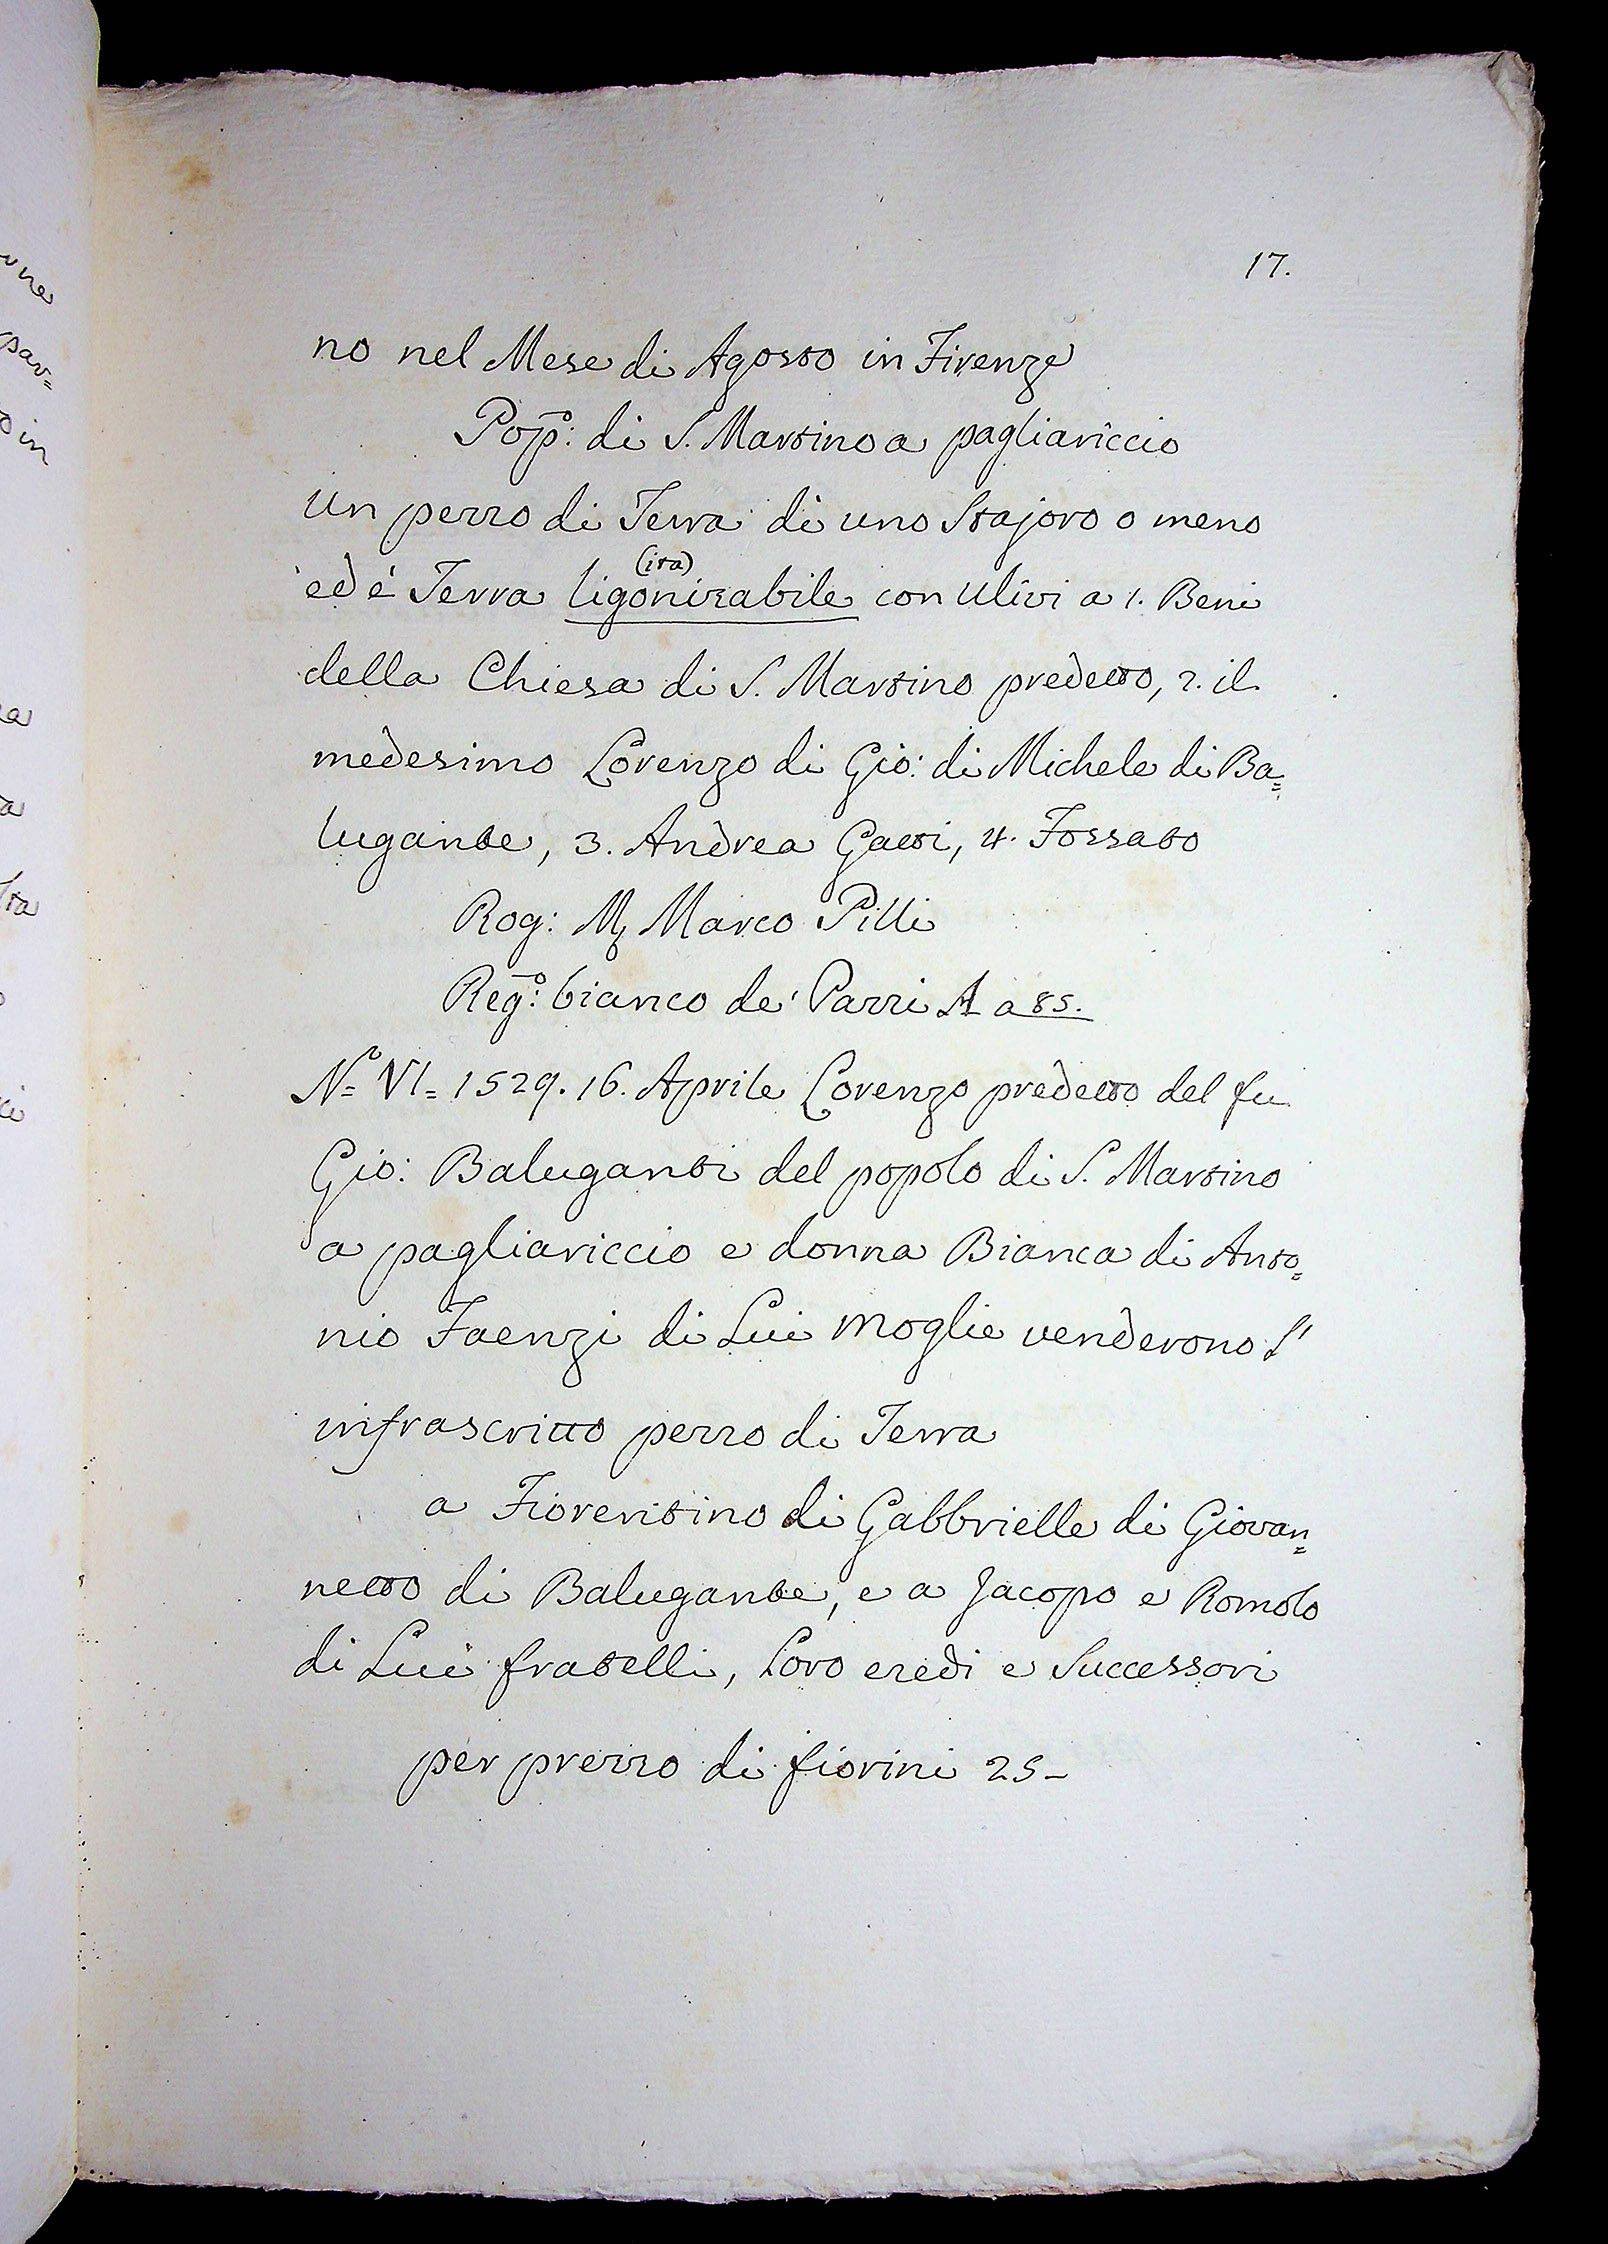 une
par=
o in
a
a
sta
o
ci
17.
no nel Mese di Agosto in Firenze
Pop.º: di S. Martino a pagliariccio
un pezzo di Terra di uno Stajoro o meno
(ita)
ed è Terra ligonizabile con ulivi a 1. Beni
della Chiesa di S. Martino predetto, 2. il
medesimo Lorenzo di Gio: di Michele di Ba=
lugante, 3. Andrea Gatti, 4. Fossato
Rog: M. Marco Pilli
Reg.º: bianco de' Pazzi A a 85.
N.º VI= 1529. 16. Aprile Lorenzo predetto del fu
Gio: Baluganti del popolo di S. Martino
a pagliariccio e donna Bianca di Anto=
nio Faenzi di Lui moglie venderono l'
infrascritto pezzo di Terra
a Fiorentino di Gabbrielle di Giovan=
netto di Balugante, e a Jacopo e Romolo
di Lui fratelli, Loro eredi e Successori
per prezzo di fiorini 25–